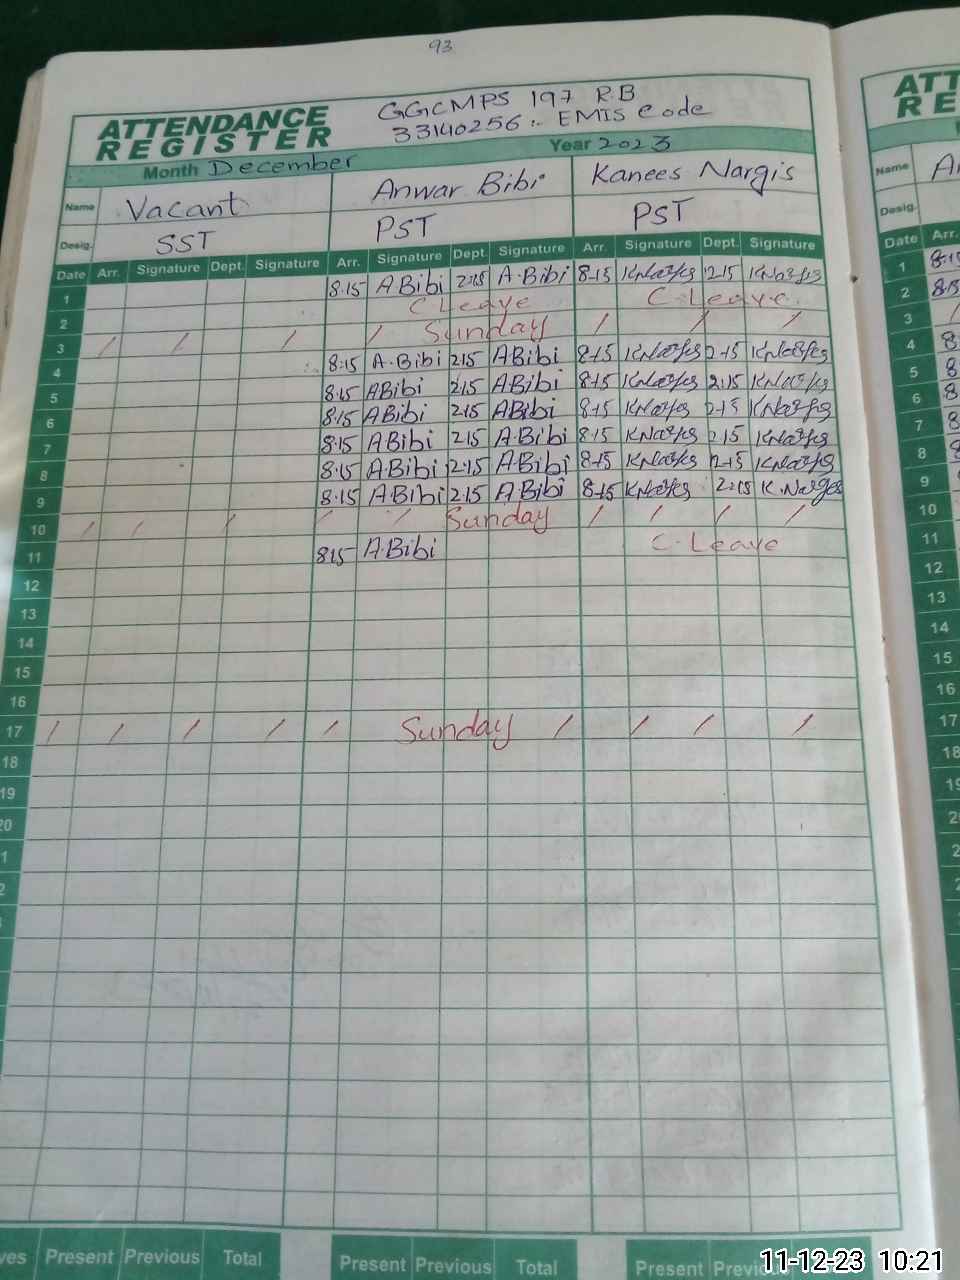 93
ATTENDANCE REGISTER
GGCMPS 197 R.B
33140256:- EMIS Code
Month December Year 2023
Name Vacant Anwar Bibi Kanees Nargis
Desig. SST PST PST
Date Arr. Signature Dept. Signature Arr. Signature Dept. Signature Arr. Signature Dept. Signature
1 8.15 A Bibi 2:15 A.Bibi 8-15 K.Narfis 2.15 K.Narfis
2 C Leave C. Leave
3 / / / / Sunday / / /
4 8.15 A.Bibi 2.15 A Bibi 8-15 K.Narfis 2-15 K.Narfis
5 8.15 A Bibi 2.15 A Bibi 8-15 K.Narfis 2.15 K.Narfis
6 8.15 A Bibi 2.15 A Bibi 8-15 K.Narfis 2-15 K.Narfis
7 8.15 A Bibi 2.15 A.Bibi 8-15 K.Narfis 2.15 K.Narfis
8 8.15 A.Bibi 2.15 A.Bibi 8-15 K.Narfis 2-15 K.Narfis
9 8.15 A Bibi 2.15 A Bibi 8-15 K.Narfis 2:15 K.Narges
10 / / / / / Sunday / / / /
11 8.15 A.Bibi C. Leave
12
13
14
15
16
17 / / / / / Sunday / / / /
18
19
20
Present Previous Total Present Previous Total Present
ATT
RE
Name
Desig.
Date Arr.
1 8.15
2 8.15
3 /
4 8
5 8
6 8
7
8
9
10
11
12
13
14
15
16
17
18
11-12-23 10:21